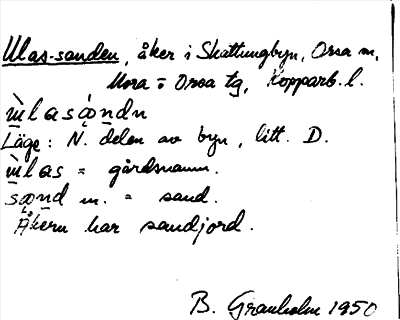 Ulas-sanden, åker i Skattungbyn, Orsa sn,
Mora o Orsa tg, Kopparb. l.
Läge: N. delen av byn, litt. D.
= gårdsnamn.
m. = sand.
Åkern har sandjord.
B. Granholm 1950